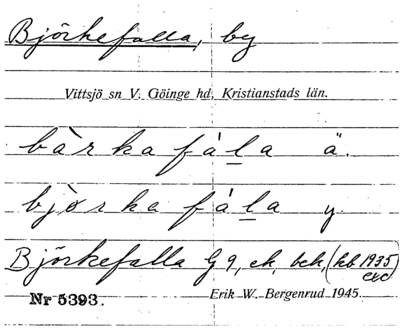 Björkefalla, by
Vittsjö sn V. Göinge hd, Kristianstads län.
bàrka fála ä.
bjòrka fála y.
Björkefalla G 9, ek, bck, (kb 1935
Nr 5393. Erik W. Bergenrud 1945.